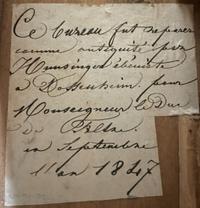 Ce bureau fut reparer
comme antiquité par
Hunsinger ébéniste
a Dossenheim pour
Monseigneur le Duc
de Feltre
en Septembre
11 an 1847